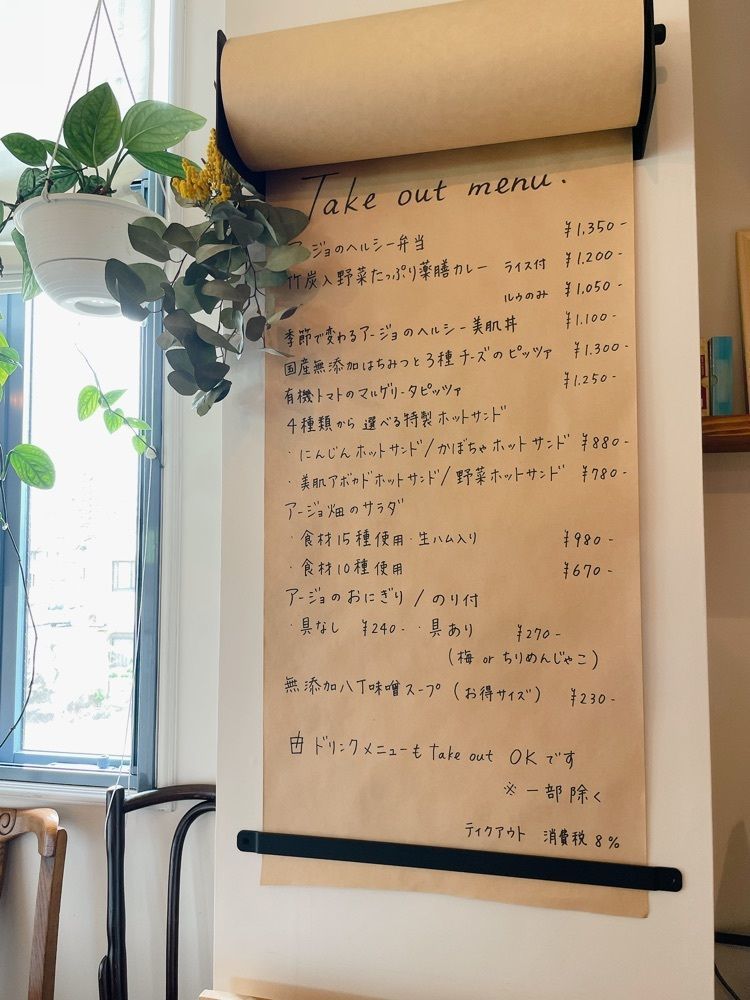 Take out menu.
アージョのヘルシー弁当 ¥1,350-
竹炭入野菜たっぷり薬膳カレー ライス付 ¥1,200-
ルウのみ ¥1,050-
季節で変わるアージョのヘルシー美肌丼 ¥1,100-
国産無添加はちみつと3種チーズのピッツァ ¥1,300-
有機トマトのマルゲリータピッツァ ¥1,250-
4種類から選べる特製ホットサンド
・にんじんホットサンド/かぼちゃホットサンド ¥880-
・美肌アボカドホットサンド/野菜ホットサンド ¥780-
アージョ畑のサラダ
・食材15種使用・生ハム入り ¥980-
・食材10種使用 ¥670-
アージョのおにぎり/のり付
・具なし ¥240- ・具あり ¥270-
(梅orちりめんじゃこ)
無添加八丁味噌スープ(お得サイズ) ¥230-
ドリンクメニューもTake out OKです
※一部除く
テイクアウト 消費税8%